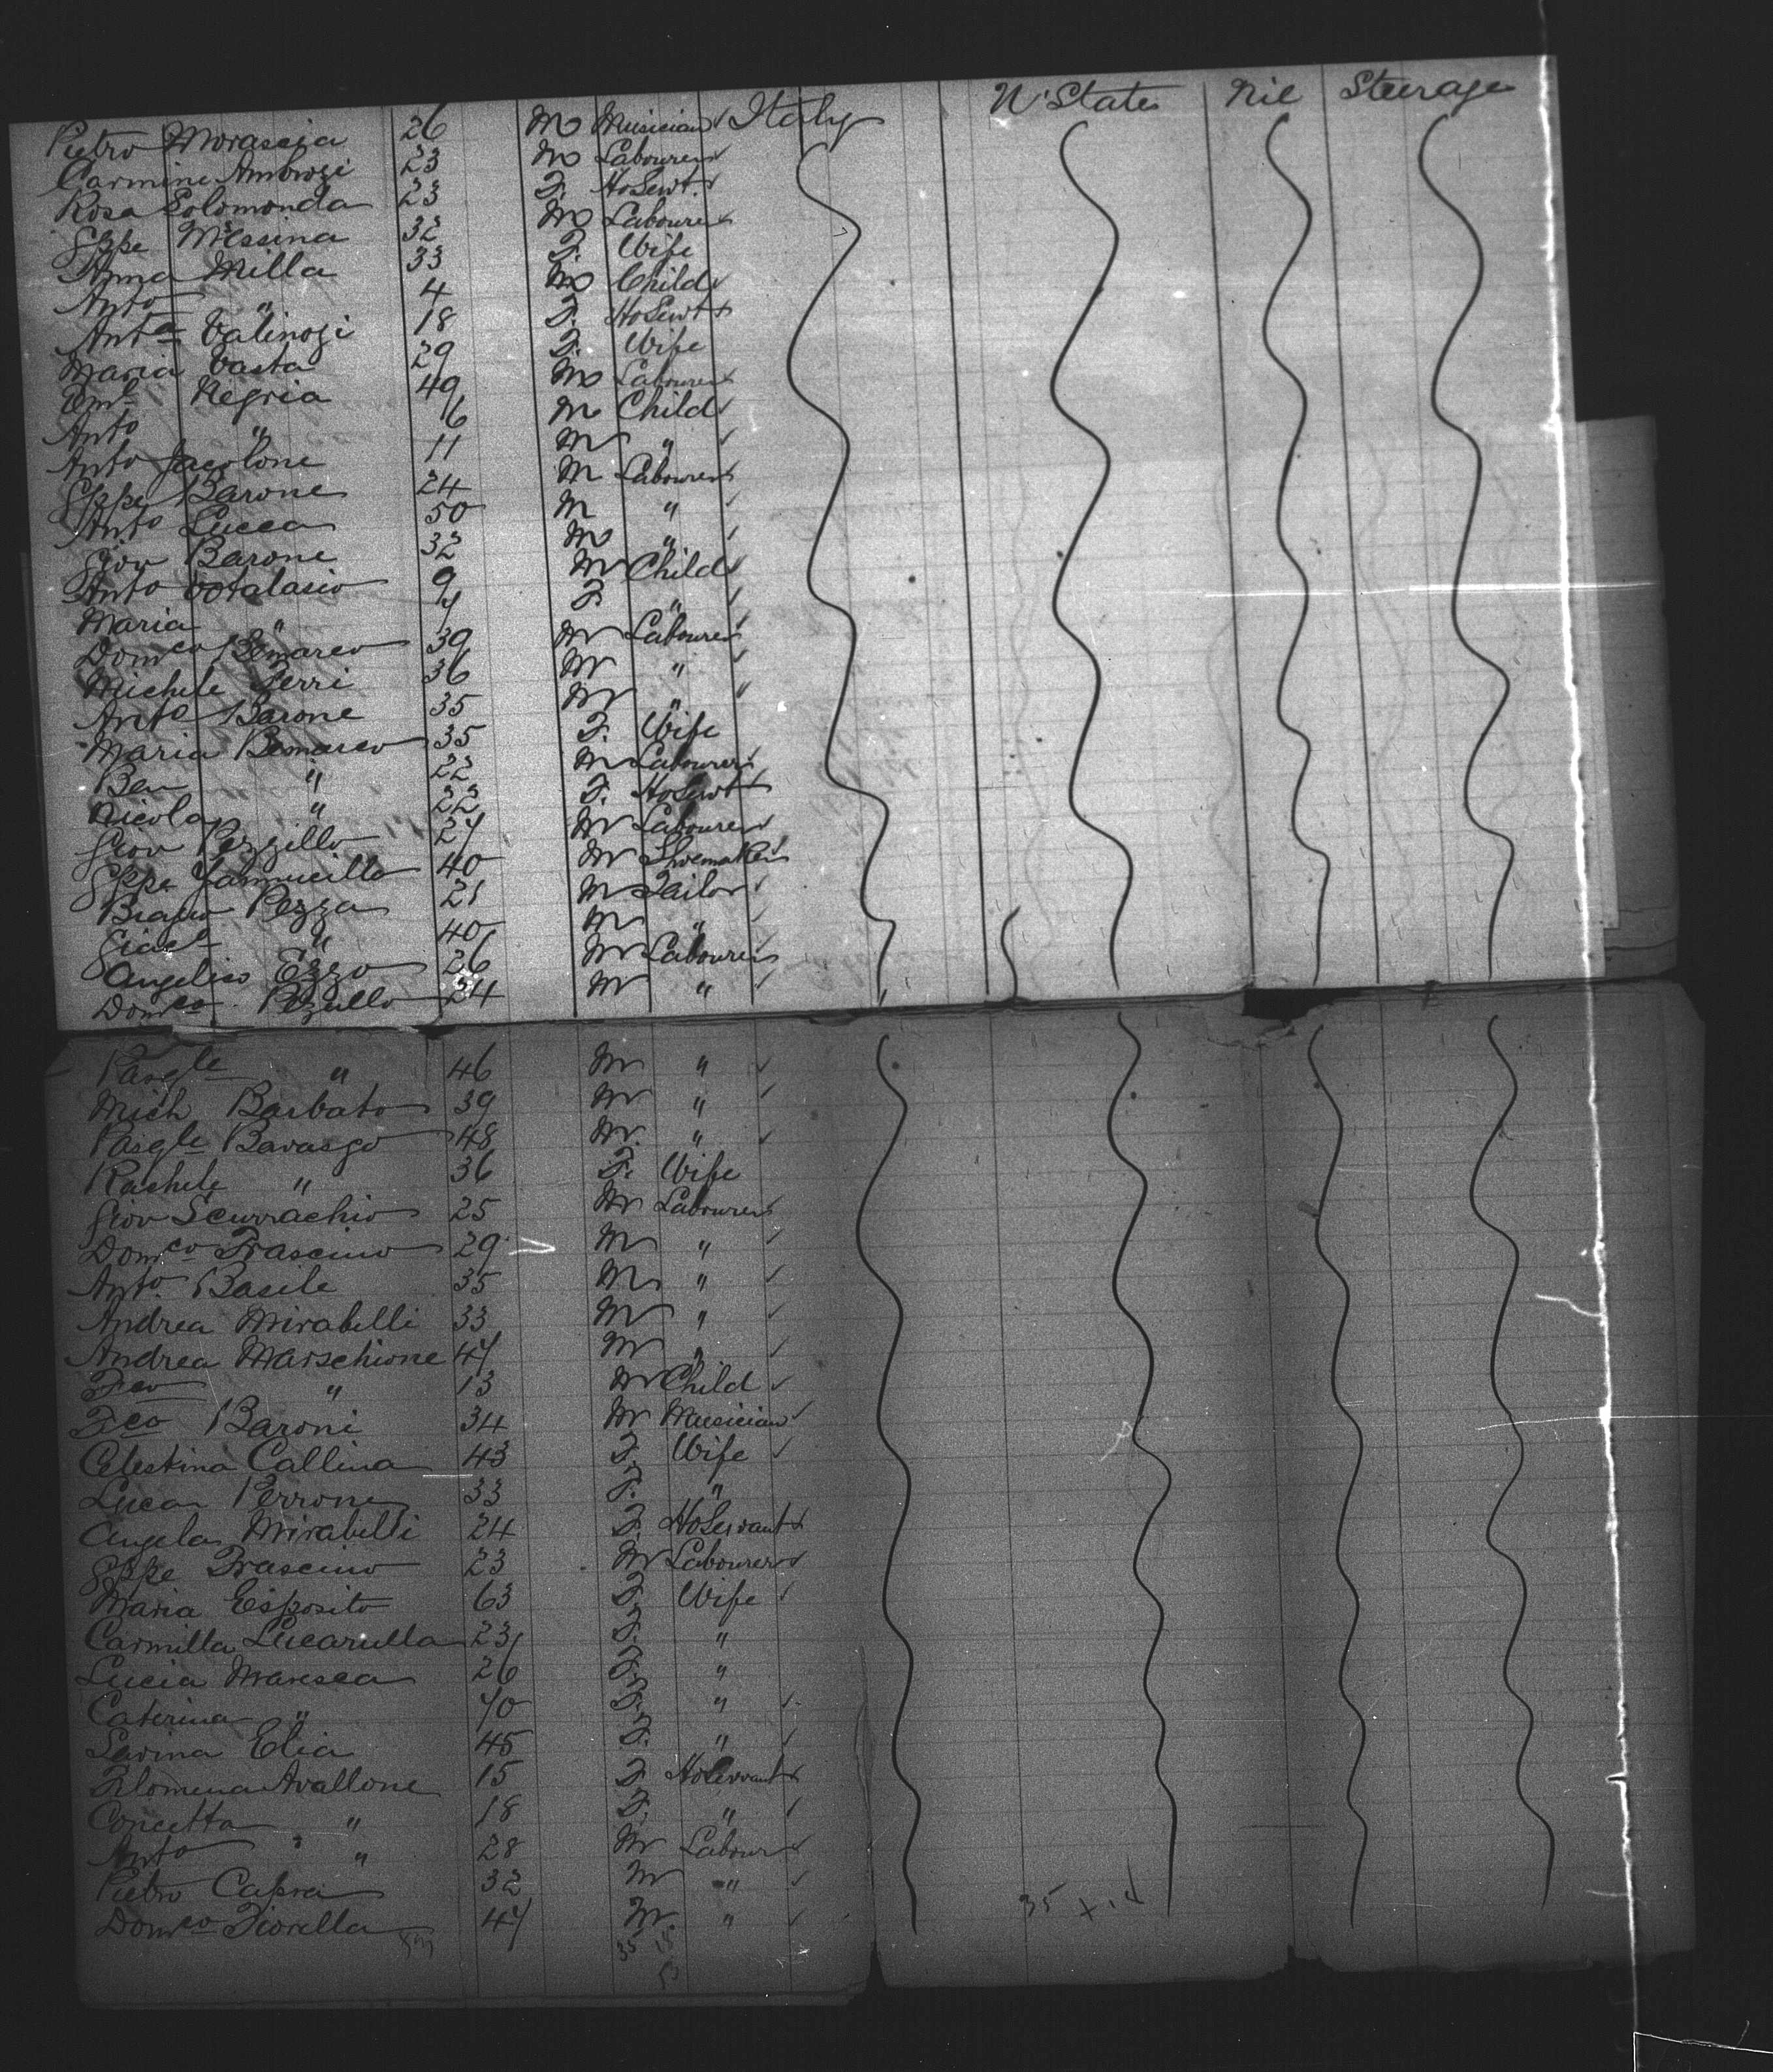 Pietro Morascia 26 M Musician Italy U States Nil Steerage
Carmine Ambrozi 23 M Labourer
Rosa Solomonda 23 F. HoSevt.
Gppe Messina 32 M Labourer
Anna Milla 33 F. Wife
Anto " 4 M Child
Anta Valinozi 18 F. HoSevt
Maria Vasta 29 F. Wife
Eml Negria 49 M Labourer
Anto " 6 M Child
Anto Jacolone 11 M "
Gppe Barone 24 M Labourer
Anto Lucca 50 M "
Giov Barone 32 M "
Anto Votalasio 9 M Child
Maria " 4 F. "
Domco Bemarco 39 M Labourer
Michele Perri 36 M "
Anto Barone 35 M "
Maria Bemarco 35 F. Wife
Ben " 22 M Labourer
Nicola " 22 F. HoSevt
Giov Pezzillo 27 M Labourer
Gppe Jannucillo 40 M Shoemaker
Biagio Pezza 21 M Tailor
Giacl " 40 M "
Angelico Ezzo 26 M Labourer
Domco Pezullo 24 M "
Pasqle " 46 M "
Mich Barbato 39 M "
Pasqle Barasgo 48 M. "
Rachele " 36 F. Wife
Giov Scurrachio 25 M Labourer
Domco Frascino 29 M "
Anto Basile 35 M "
Andrea Mirabelli 33 M "
Andrea Marschione 47 M "
Fco " 13 M Child
Fco Baroni 34 M Musician
Celestina Callina 43 F. Wife
Luca Perrone 33 F. "
Angela Mirabelli 24 F. HoServant
Gppe Frascino 23 M Labourer
Maria Esposito 63 F. Wife
Carmilla Lucarulla 23 F. "
Lucia Maresca 26 F. "
Caterina " 40 F. "
Savina Elia 45 F. "
Filomena Avallone 15 F HoServant
Concetta " 18 F. "
Anto " 28 M Labourer
Pietro Capra 32 M "
Domco Fiorella 47 M. "
35